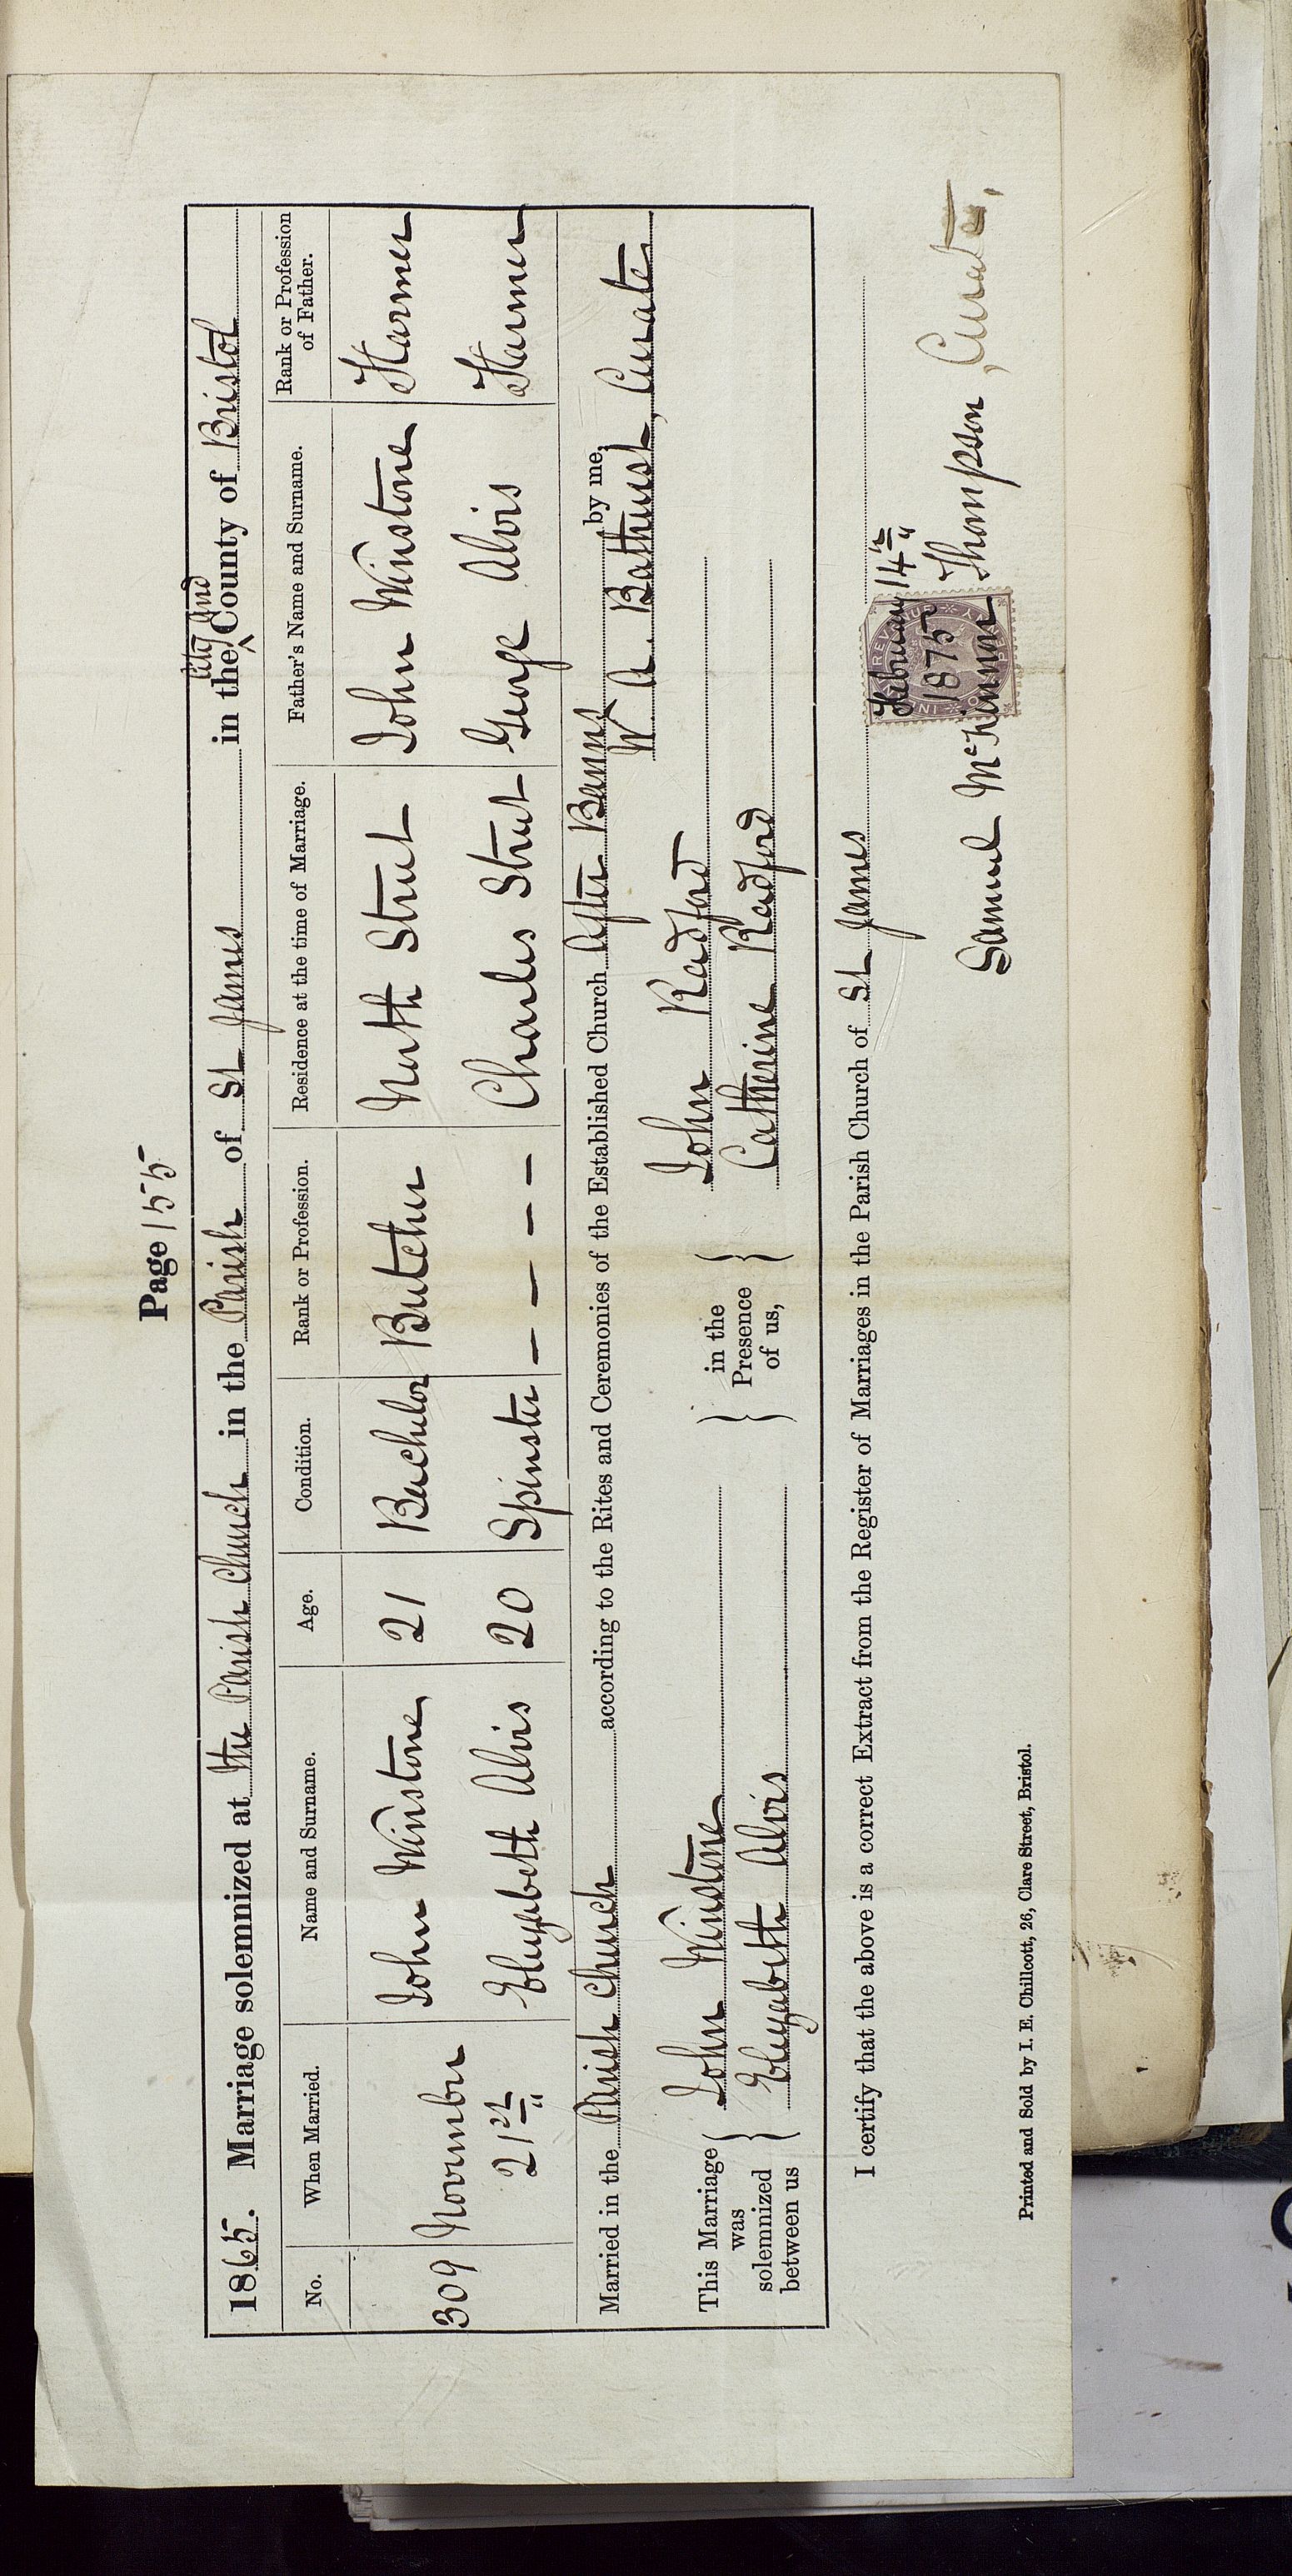 Page 155
1865. Marriage solemnized at the Parish Church in the Parish of St James in the City and County of Bristol
No. When Married. Name and Surname. Age. Condition. Rank or Profession. Residence at the time of Marriage. Father's Name and Surname. Rank or Profession of Father.
309 November 21st John Winstone 21 Bachelor Butcher North Street John Winstone Farmer
Elizabeth Alvis 20 Spinster – – – – Charles Street George Alvis Farmer
Married in the Parish Church according to the Rites and Ceremonies of the Established Church after Banns by me,
W. A. Bathurst, Curate
This Marriage was solemnized between us { John Winstone } in the Presence of us, { John Radford
Elizabeth Alvis Catherine Radford
I certify that the above is a correct Extract from the Register of Marriages in the Parish Church of St James
February 14th
1875
Samuel McKinnon Thompson, Curate,
Printed and Sold by I. E. Chillcott, 26, Clare Street, Bristol.